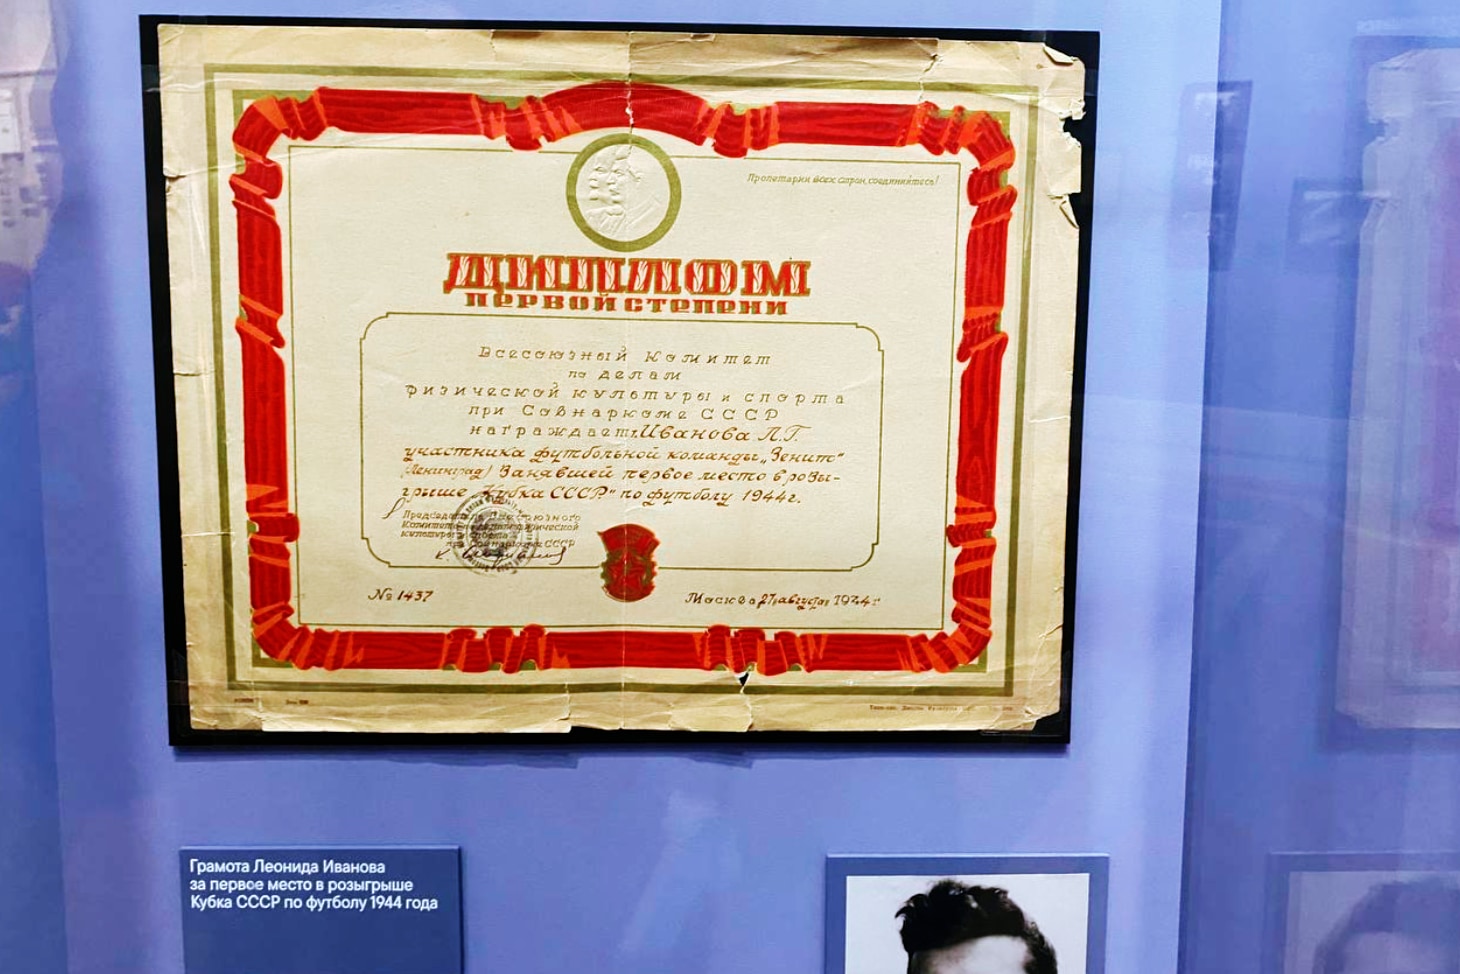 Пролетарии всех стран, соединяйтесь!
ДИПЛОМ
ПЕРВОЙ СТЕПЕНИ
Всесоюзный Комитет
по делам
физической культуры и спорта
при Совнаркоме СССР
награждает Иванова Л.Г.
участника футбольной команды „Зенит"
(Ленинград) Занявшей первое место в розы-
грыше „Кубка СССР" по футболу 1944 г.
Председатель Всесоюзного
Комитета физической
культуры и спорта
при Совнаркоме СССР
№ 1437
Москва 27 августа 1944 г.
Грамота Леонида Иванова
за первое место в розыгрыше
Кубка СССР по футболу 1944 года